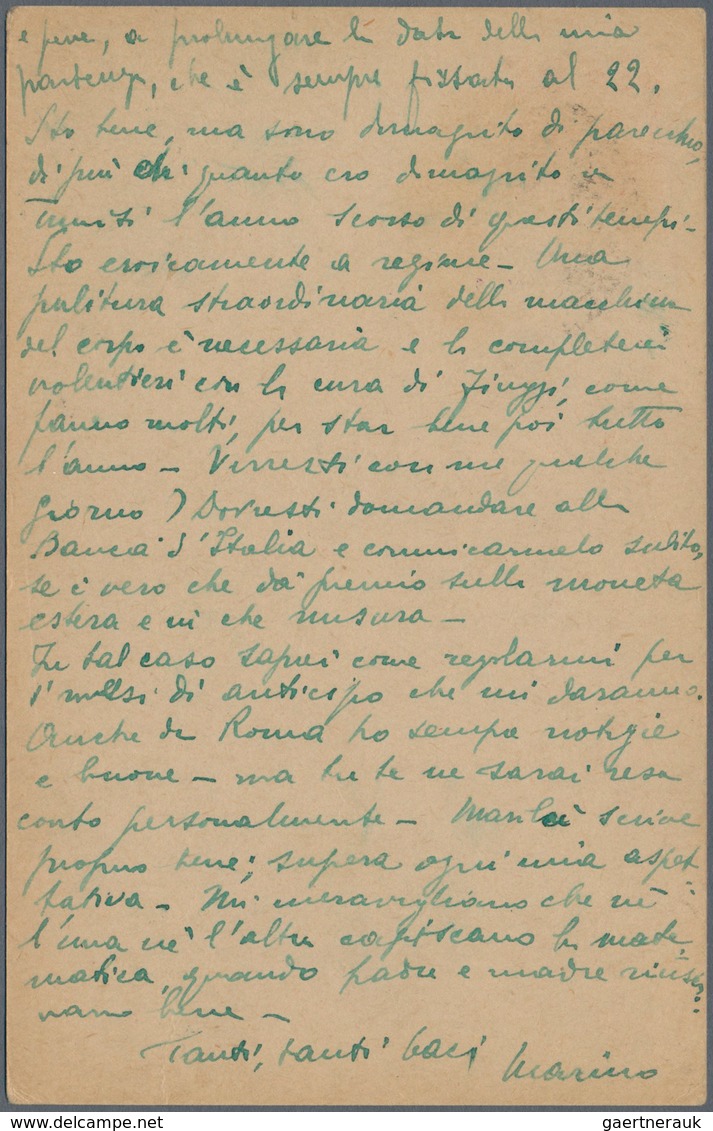 e pure, a prolungare la data della mia
partenza, che è sempre fissata al 22.
Sto bene, ma sono dimagrito di parecchio,
di più di quanto ero dimagrito a
l'anno scorso di questi tempi -
Sto eroicamente a regime - Una
pulitura straordinaria della macchina
del corpo è necessaria e la completerei
volentieri con la cura di Fiuggi, come
fanno molti, per star bene poi tutto
l'anno - Verresti con me qualche
giorno? Dovresti domandare alla
Banca d'Italia e comunicarmelo subito,
se è vero che dà premio sulla moneta
estera e in che misura -
In tal caso saprei come regolarmi per
di anticipo che mi daranno.
Anche da Roma ho sempre notizie
e buone - ma tu te ne sarai resa
conto personalmente - scrive
proprio bene; supera ogni mia aspet-
tativa - Mi meravigliano che nè
l'una nè l'altra capiscano la mate-
matica, quando padre e madre riusci-
vano bene -
Tanti, tanti baci
Marino
gaertnerauk